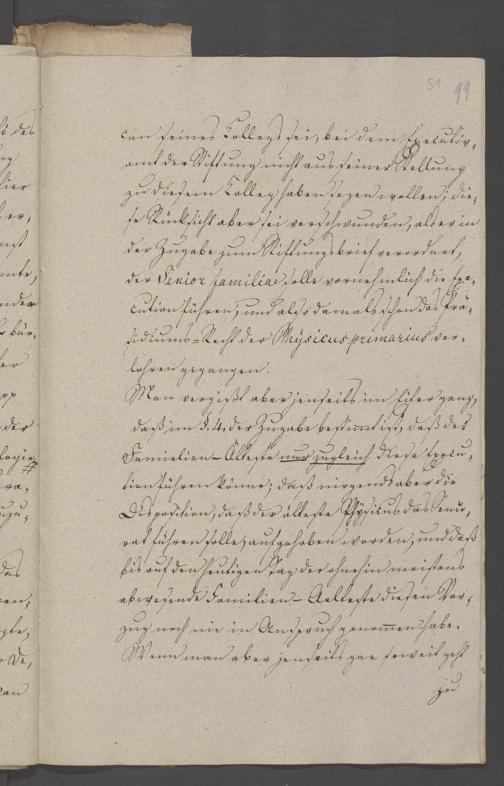 51 99
can seines Collegs sei, bei dem Executiv-
amt der Stiftung nicht aus seiner Stellung
zu diesem Colleg haben sezen wollen; die-
se Rücksicht aber sei verschwunden, als er in
der Zugabe zum Stiftungsbrief verordnet,
der Senior familiae solle vornehmlich die Exe-
cution führen, und also damals schon das Prä-
sidiums-Recht der Physicus primarius ver-
lohren gegangen.
Man vergißt aber jenseits im Eifer ganz,
daß im §. 4. der Zugabe bestimmt ist, daß der
Familien-Älteste nur zugleich diese Execu-
tion führen könne; daß nirgends aber die
Disposition, daß der älteste Physicus das Senio-
rat führen solle, aufgehoben worden, und daß
bis auf den heutigen Tag der ohnehin meistens
abwesende Familien-Aelteste diesen Vor-
zug noch nie in Anspruch genommen habe.
Wenn man aber jenseits gar soweit geht
zu